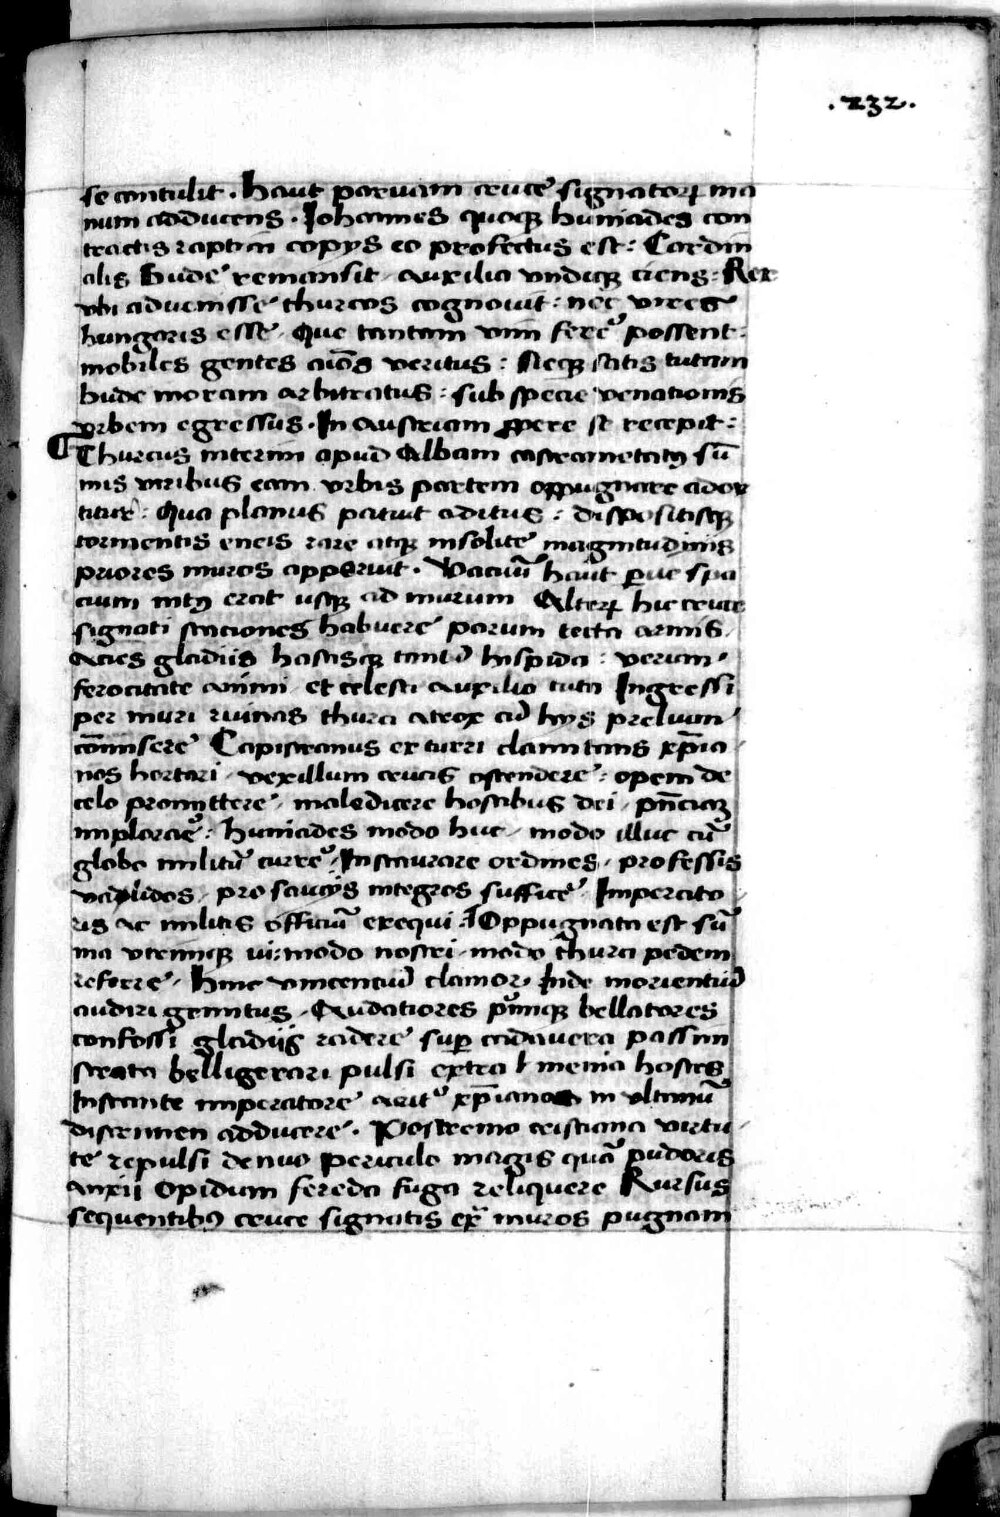 .232.
se contulit. haut paruam cruce signatoꝝ ma
num adducens. Johannes quoqꝫ huniades con
tractis raptim copijs eo profectus est: Cardin
alis Bude remansit, auxilia undiqꝫ ciens: Rex
vbi aduenisse thurcos cognouit: nec vires
hungaris esse, Que tantam vim ferre possent:
mobiles gentes aiōs veritus: Neqꝫ satis tutam
bude moram arbitratus: sub specie venationis
vrbem egressus. In Austriam ꝓpere se recepit:
Thurcus interim apud Albam castrametatꝰ sū
mis viribus eam vrbis partem oppugnare ador
titur: Qua planus patuit aditus: dispositisqꝫ
tormentis eneis rare atqꝫ insolite magnitudinis
priores muros apperuit. Vacuū haut ꝑue spa
cium intꝰ erat usqꝫ ad murum Alterꝝ hic cruce
signati staciones habuere parum tecta armis,
Acies gladiis hastisqꝫ tantū hispida: verum
ferocitate animi, et celesti auxilio tuta Ingressi
per muri ruinas thurci atrox cū hijs prelium
cōmisere Capistranus ex turri clamitans xp̄ia
nos hortari, vexillum crucis ostendere: opem de
celo promittere, maledicere hostibus dei, pn̄ciaꝫ
implorare: huniades modo huc, modo illuc cū
globo militū currere, Instaurare ordines, pro fessis
validos, pro saucijs integros sufficere, Imperato
ris ac militis officiū exequi: Oppugnata est sū
ma vtrinqꝫ vi: modo nostri, modo thurci pedem
referre, hinc vincentiū clamor, Inde morientiū
audiri gemitus, Audatiores primiqꝫ bellatores
confossi gladiis cadere super cadauera passim
strata belligerari pulsi extra menia hostes
Instante imperatore xp̄ianos in vltimū
discrimen adducere. Postremo cristiana virtu
te repulsi denuo periculo magis quā pudoris
anxii Opidum fereda fuga reliquere Rursus
sequentibꝰ cruce signatis exͣ muros pugnam